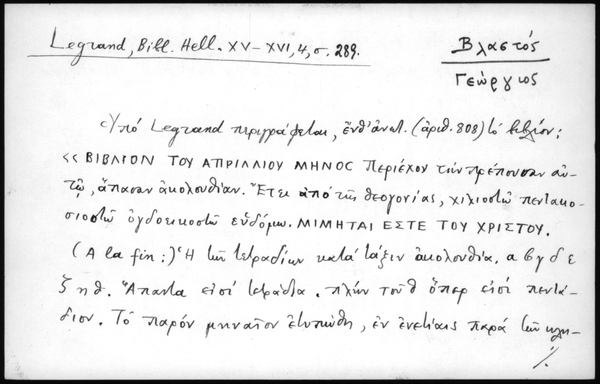 Legrand, Bibl. Hell. XV–XVI, 4, σ. 289.
Βλαστός
Γεώργιος
Ὑπό Legrand περιγράφεται, ἔνθ' ἀνωτ. (ἀριθ. 808) τό βιβλίον:
«ΒΙΒΛΙΟΝ ΤΟΥ ΑΠΡΙΛΛΙΟΥ ΜΗΝΟC περιέχον τήν πρέπουσαν αὐ-
τῷ, ἅπασαν ἀκολουθίαν. Ἔτει ἀπό τῆς θεογονίας, χιλιοστῷ πεντακο-
σιοστῷ ὀγδοεικοστῷ ἑυδόμω. ΜΙΜΗΤΑΙ ΕΣΤΕ ΤΟΥ ΧΡΙΣΤΟΥ.
(A la fin:) Ἡ τῶν τετραδίων κατά τάξιν ἀκολουθία. α β γ δ ε
ζ η θ. Ἅπαντα εἰσί τετράδια. πλήν τοῦ θ ὅπερ εἰσί πεντά-
διον. Τό παρόν μηναῖον ἐτυπώθη, ἐν ἐνετίαις παρά τῶν κλη-
./.